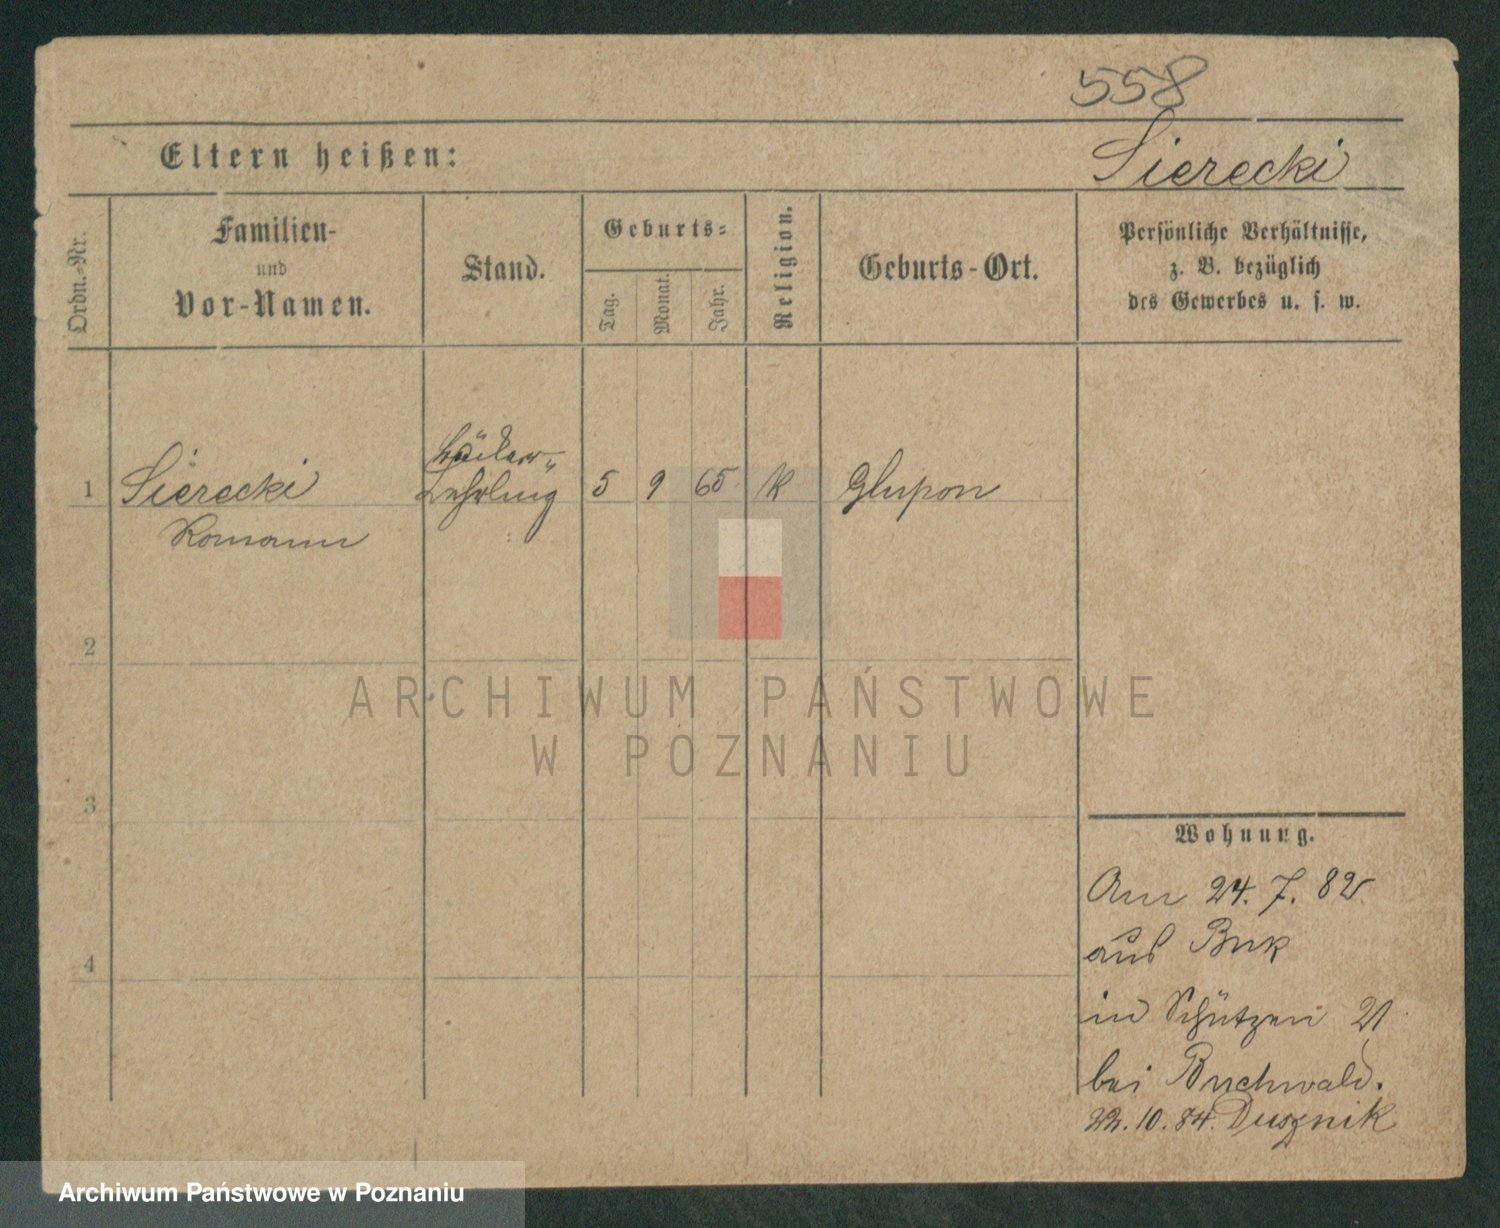 558
Eltern heißen:
Sierecki
Ordn.-Nr.
Familien-
und
Vor-Namen.
Stand.
Geburts-
Tag.
Monat.
Jahr.
Religion.
Geburts-Ort.
Persönliche Verhältnisse,
z. B. bezüglich
des Gewerbes u. s. w.
Bäcker-
1 Sierecki Lehrling 5 9 65 K Glupon
Romann
2
ARCHIWUM PAŃSTWOWE
W POZNANIU
3
Wohnung.
Am 24. 7. 82
aus Buk
4
in Schützen 21
bei Buchwald.
22. 10. 84. Dusznik
Archiwum Państwowe w Poznaniu